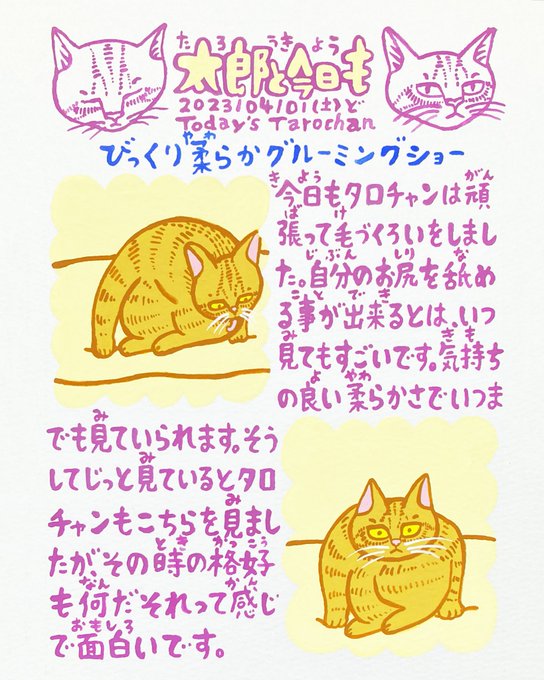 太郎と今日も
2023/04/01(土)ど
Today's Tarochan
びっくり柔らかグルーミングショー
今日もタロチャンは頑
張って毛づくろいをしまし
た。自分のお尻を舐め
る事が出来るとは、いつ
見てもすごいです。気持ち
の良い柔らかさでいつま
でも見ていられます。そう
してじっと見ているとタロ
チャンもこちらを見まし
たがその時の格好
も何だそれって感じ
で面白いです。